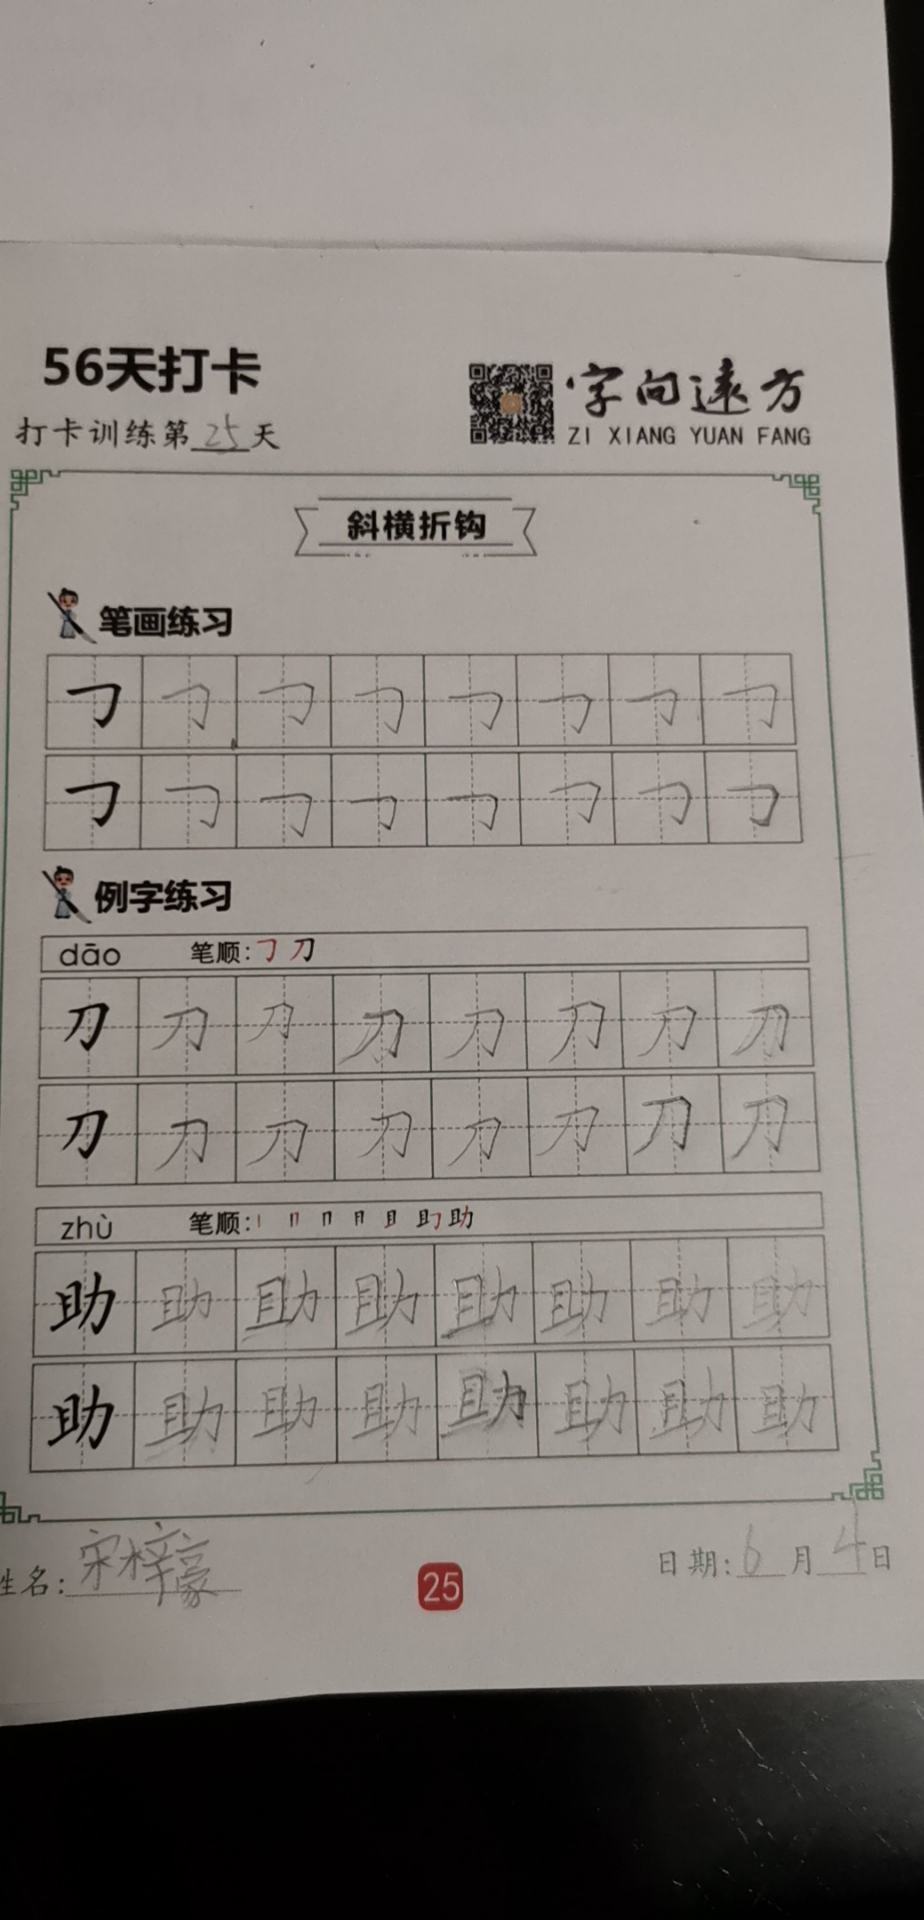 56天打卡
打卡训练第25天
字向远方
ZI XIANG YUAN FANG
斜横折钩
笔画练习
𠃌 𠃌 𠃌 𠃌 𠃌 𠃌 𠃌 𠃌
𠃌 𠃌 𠃌 𠃌 𠃌 𠃌 𠃌 𠃌
例字练习
dāo 笔顺:𠃌 刀
刀 刀 刀 刀 刀 刀 刀 刀
刀 刀 刀 刀 刀 刀 刀 刀
zhù 笔顺:丨 冂 冂 月 且 助
助 助 助 助 助 助 助 助
助 助 助 助 助 助 助 助
姓名:宋梓豪
25
日期:6月4日